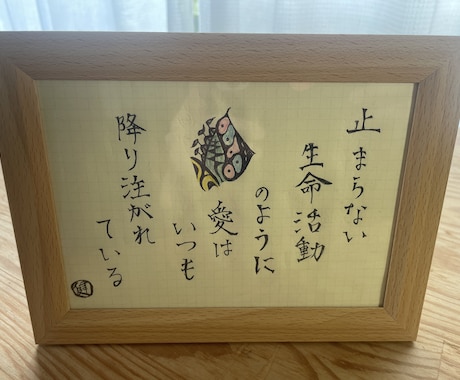 止まらない
生命活動
のように
愛は
いつも
降り注がれ
ている